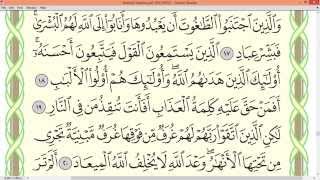 وَٱلَّذِينَ ٱجْتَنَبُوا۟ ٱلطَّٰغُوتَ أَن يَعْبُدُوهَا وَأَنَابُوٓا۟ إِلَى ٱللَّهِ لَهُمُ ٱلْبُشْرَىٰ
فَبَشِّرْ عِبَادِ ١٧ ٱلَّذِينَ يَسْتَمِعُونَ ٱلْقَوْلَ فَيَتَّبِعُونَ أَحْسَنَهُۥٓ
أُو۟لَٰٓئِكَ ٱلَّذِينَ هَدَىٰهُمُ ٱللَّهُ وَأُو۟لَٰٓئِكَ هُمْ أُو۟لُوا۟ ٱلْأَلْبَٰبِ ١٨
أَفَمَنْ حَقَّ عَلَيْهِ كَلِمَةُ ٱلْعَذَابِ أَفَأَنتَ تُنقِذُ مَن فِى ٱلنَّارِ ١٩
لَٰكِنِ ٱلَّذِينَ ٱتَّقَوْا۟ رَبَّهُمْ لَهُمْ غُرَفٌ مِّن فَوْقِهَا غُرَفٌ مَّبْنِيَّةٌ تَجْرِى
مِن تَحْتِهَا ٱلْأَنْهَٰرُ وَعْدَ ٱللَّهِ لَا يُخْلِفُ ٱللَّهُ ٱلْمِيعَادَ ٢٠ أَلَمْ تَرَ